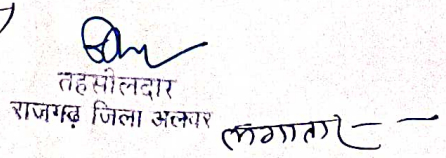 तहसीलदार
राजगढ़ जिला अलवर लगातार - -